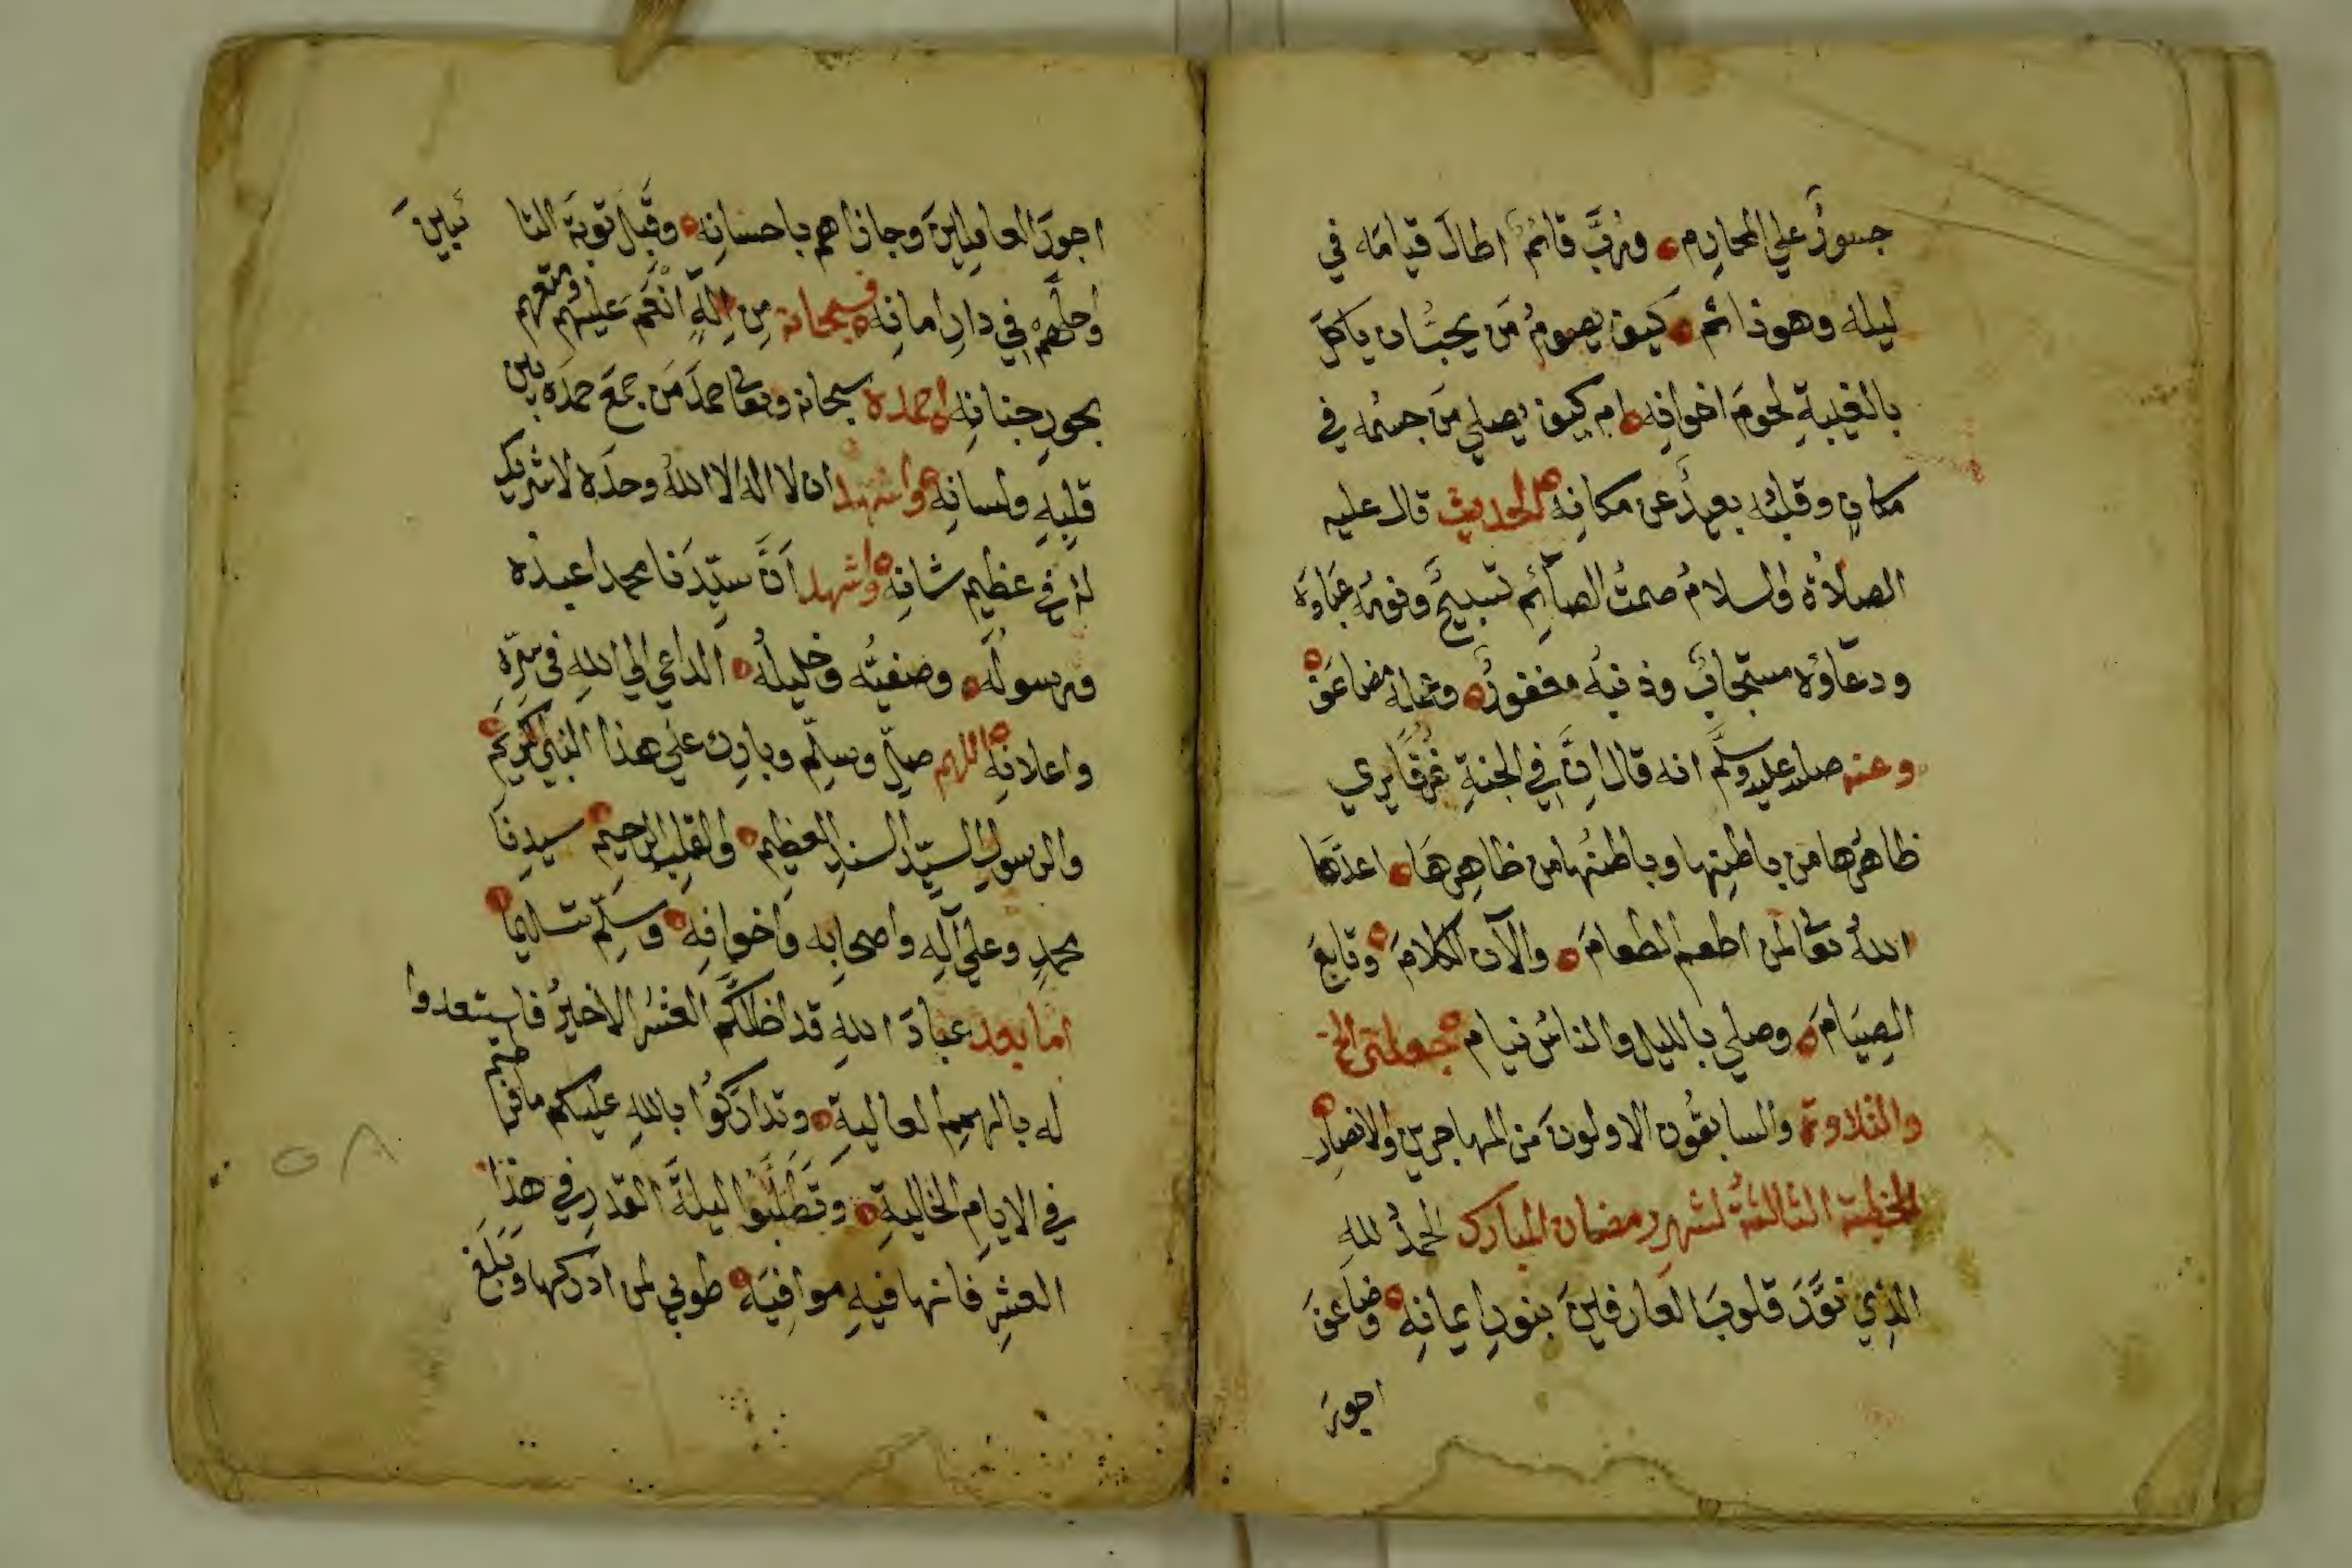 جسورٌ علي المحارم ۞ ورُبَّ قائم اطالَ قيامَه في
ليله وهو نائم ۞ كيف يصومُ مَن يحبُّ ان ياكلَ
بالغيبةِ لحومَ اخوانِه ۞ ام كيف يصلي مَن جسمُه في
مكانٍ وقلبُه بعيدٌ عن مكانِه ۞ الحديث قال عليه
الصلاةُ والسلامُ صمتُ الصائِم تسبيحٌ ونومُه عبادَة
ودعاؤه مستجابٌ وذنبُه مغفورٌ ۞ وعمله مضاعَف ۞
وعنه صلى الله عليه وسلَّم انه قال اِنَّ في الجنةِ غُرَفًا يري
ظاهرُها من باطنِها وباطنُها من ظاهرِهَا ۞ اعدَّها
اللهُ تعالى لمن اطعم الطعامَ ۞ والآن الكلامَ ۞ وتابعَ
الصِيَامَ ۞ وصلي بالليل والناسُ نيام ۞ جعلني الخ
والتلاوة والسابقُون الاولونَ من المهاجرين والانصارِ ۞
الخطبة الثالثةُ لشهر رمضان المبارك الحمدُ للهِ
الذِي نوَّرَ قلوبَ العارفينَ بنورِ ايمانِه ۞ وضاعفَ
اجورَ
اجورَ العامِلينَ وجازاهم باحسانِه ۞ وقَبِلَ توبَة التائبينَ
واحلَّهم في دارِ امانِه ۞ فسبحانه مِن اِلهٍ انْعَمَ عليهم ومتعهم
بحورِ جنانِه ۞ احمده سبحانه وتعالى حمدَ مَن جمعَ حمدَه بين
قلبِهِ ولسانِهِ ۞ واشهد ان لا اله الا اللهُ وحدَه لا شريك
لهُ في عظيمِ شانِه ۞ واشهد اَنَّ سيِّدَنا محمدا عبدُه
ورسولُه ۞ وصفيُّه وخليلُه ۞ الداعي الي اللهِ في سِرِّهِ
واعلانِه ۞ اللهم صلِّ وسلِّم وبارِك علي هذا النبيِّ الكريمِ ۞
والرسولِ السيِّدِ السندِ العظيمِ ۞ والقلبِ الرحيمِ ۞ سيدِنا
محمدٍ وعلي آلِهِ واصحابِه واخوانِه ۞ وسلِّم تسليمًا ۞
اما بعد عبادَ اللهِ قد اظلكُم العَشرُ الاخيرُ فاستعدوا
له بالهمم العاليةِ ۞ وتدارَكُوا باللهِ عليكم ما فرطتم
في الايامِ الخاليةِ ۞ وتطلَّبُوا ليلةَ القدرِ في هذا
العشرِ فانها فيهِ موافِيَه ۞ طوبي لمن ادركها وبَلَغَ
٥٨